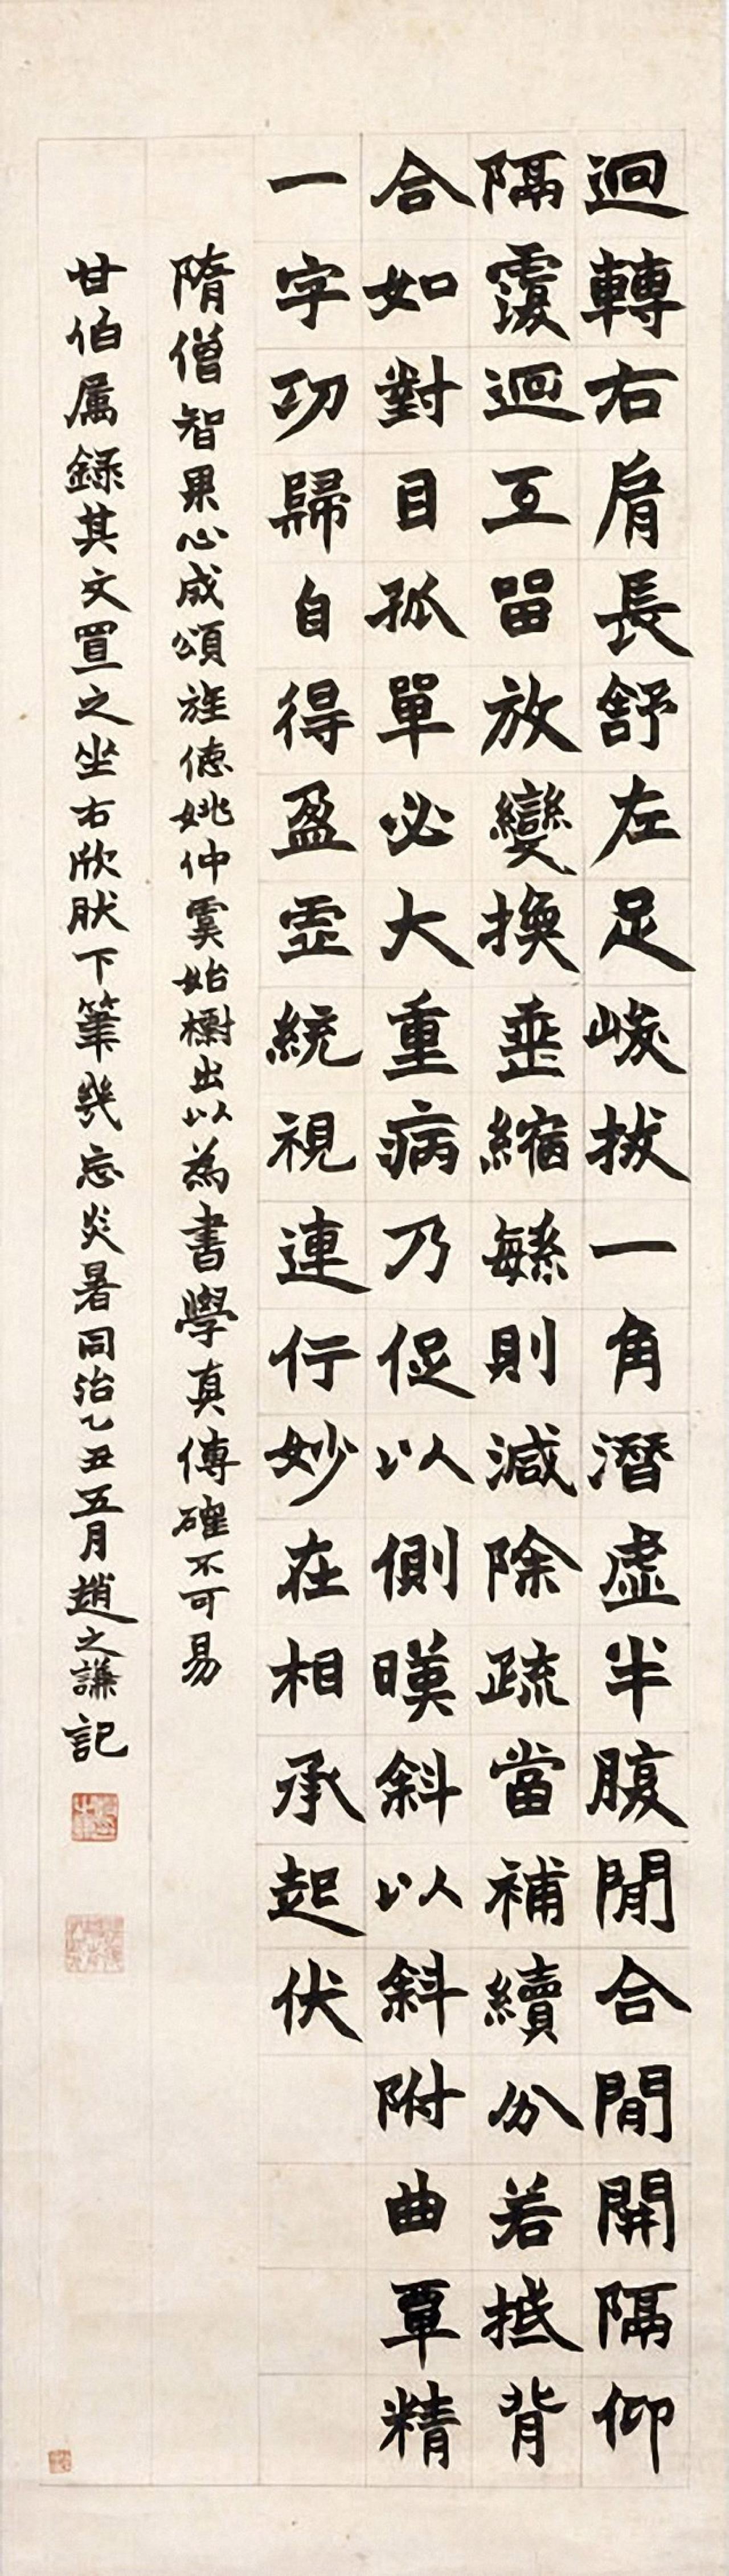 迴轉右肩長舒左足峻拔一角潛虛半腹間合間開隔仰
隔覆迴互留放變換垂縮繁則減除疏當補續分若抵背
合如對目孤單必大重病乃促以側暎斜以斜附曲覃精
一字功歸自得盈虛統視連行妙在相承起伏
隋僧智果心成頌旌德姚仲虞始櫥出以為書學真傳確不可易
甘伯属錄其文置之坐右欣肰下筆幾忘炎暑同治乙丑五月趙之謙記